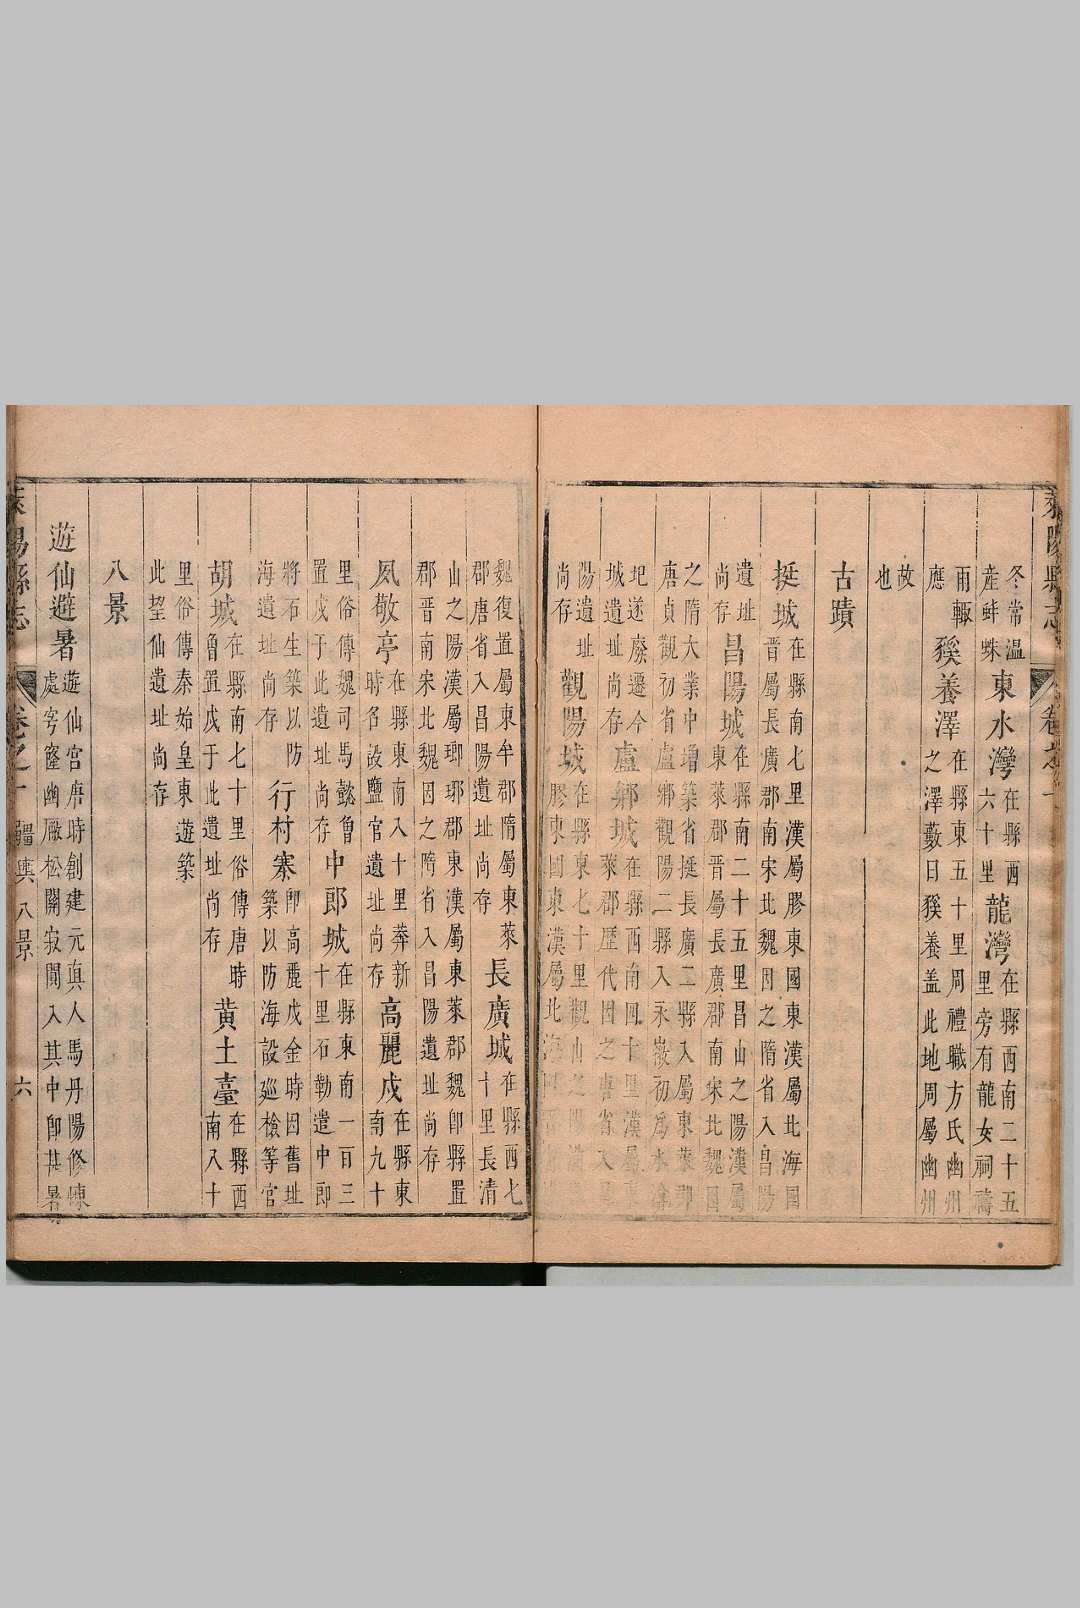 冬常溫產蚌蛛 東水灣在縣西六十里 龍灣在縣西南二十五里旁有龍女祠禱
雨輒應 豯養澤在縣東五十里周禮職方氏幽州之澤藪曰豯養盖此地周屬幽州
故也
古蹟
挺城在縣南七里漢屬膠東國東漢屬北海國晉屬長廣郡南宋北魏因之隋省入昌陽
遺址尚存 昌陽城在縣南二十五里昌山之陽漢屬東萊郡晉屬長廣郡南宋北魏因
之隋大業中增築省挺長廣二縣入屬東萊郡唐貞觀初省盧鄉觀陽二縣入永徽初為水淪
圯遂廢遷今城遺址尚存 盧鄉城在縣西南四十里漢屬東萊郡歷代因之唐省入昌
陽遺址尚存 觀陽城在縣東七十里觀山之陽漢膠東國東漢屬北海
魏復置屬東牟郡隋屬東萊郡唐省入昌陽遺址尚存 長廣城在縣西七十里長清
山之陽漢屬瑯琊郡東漢屬東萊郡魏卽縣置郡晉南宋北魏因之隋省入昌陽遺址尚存
鳳敬亭在縣東南入十里莽新時名設鹽官遺址尚存 高麗戍在縣東南九十
里俗傳魏司馬懿魯置戍于此遺址尚存 中郎城在縣東南一百三十里石勒遣中郎
將石生築以防海遺址尚存 行村寨卽高麗戍金時因舊址築以防海設巡檢等官
胡城在縣南七十里俗傳唐時魯置戍于此遺址尚存 黃土臺在縣西南入十
里俗傳秦始皇東遊築此望仙遺址尚存
八景
遊仙避暑遊仙宮唐時創建元眞人馬丹陽修煉處穹窿幽厰松關寂閴入其中卽甚暑
萊陽縣志 卷之一 疆輿 八景 六